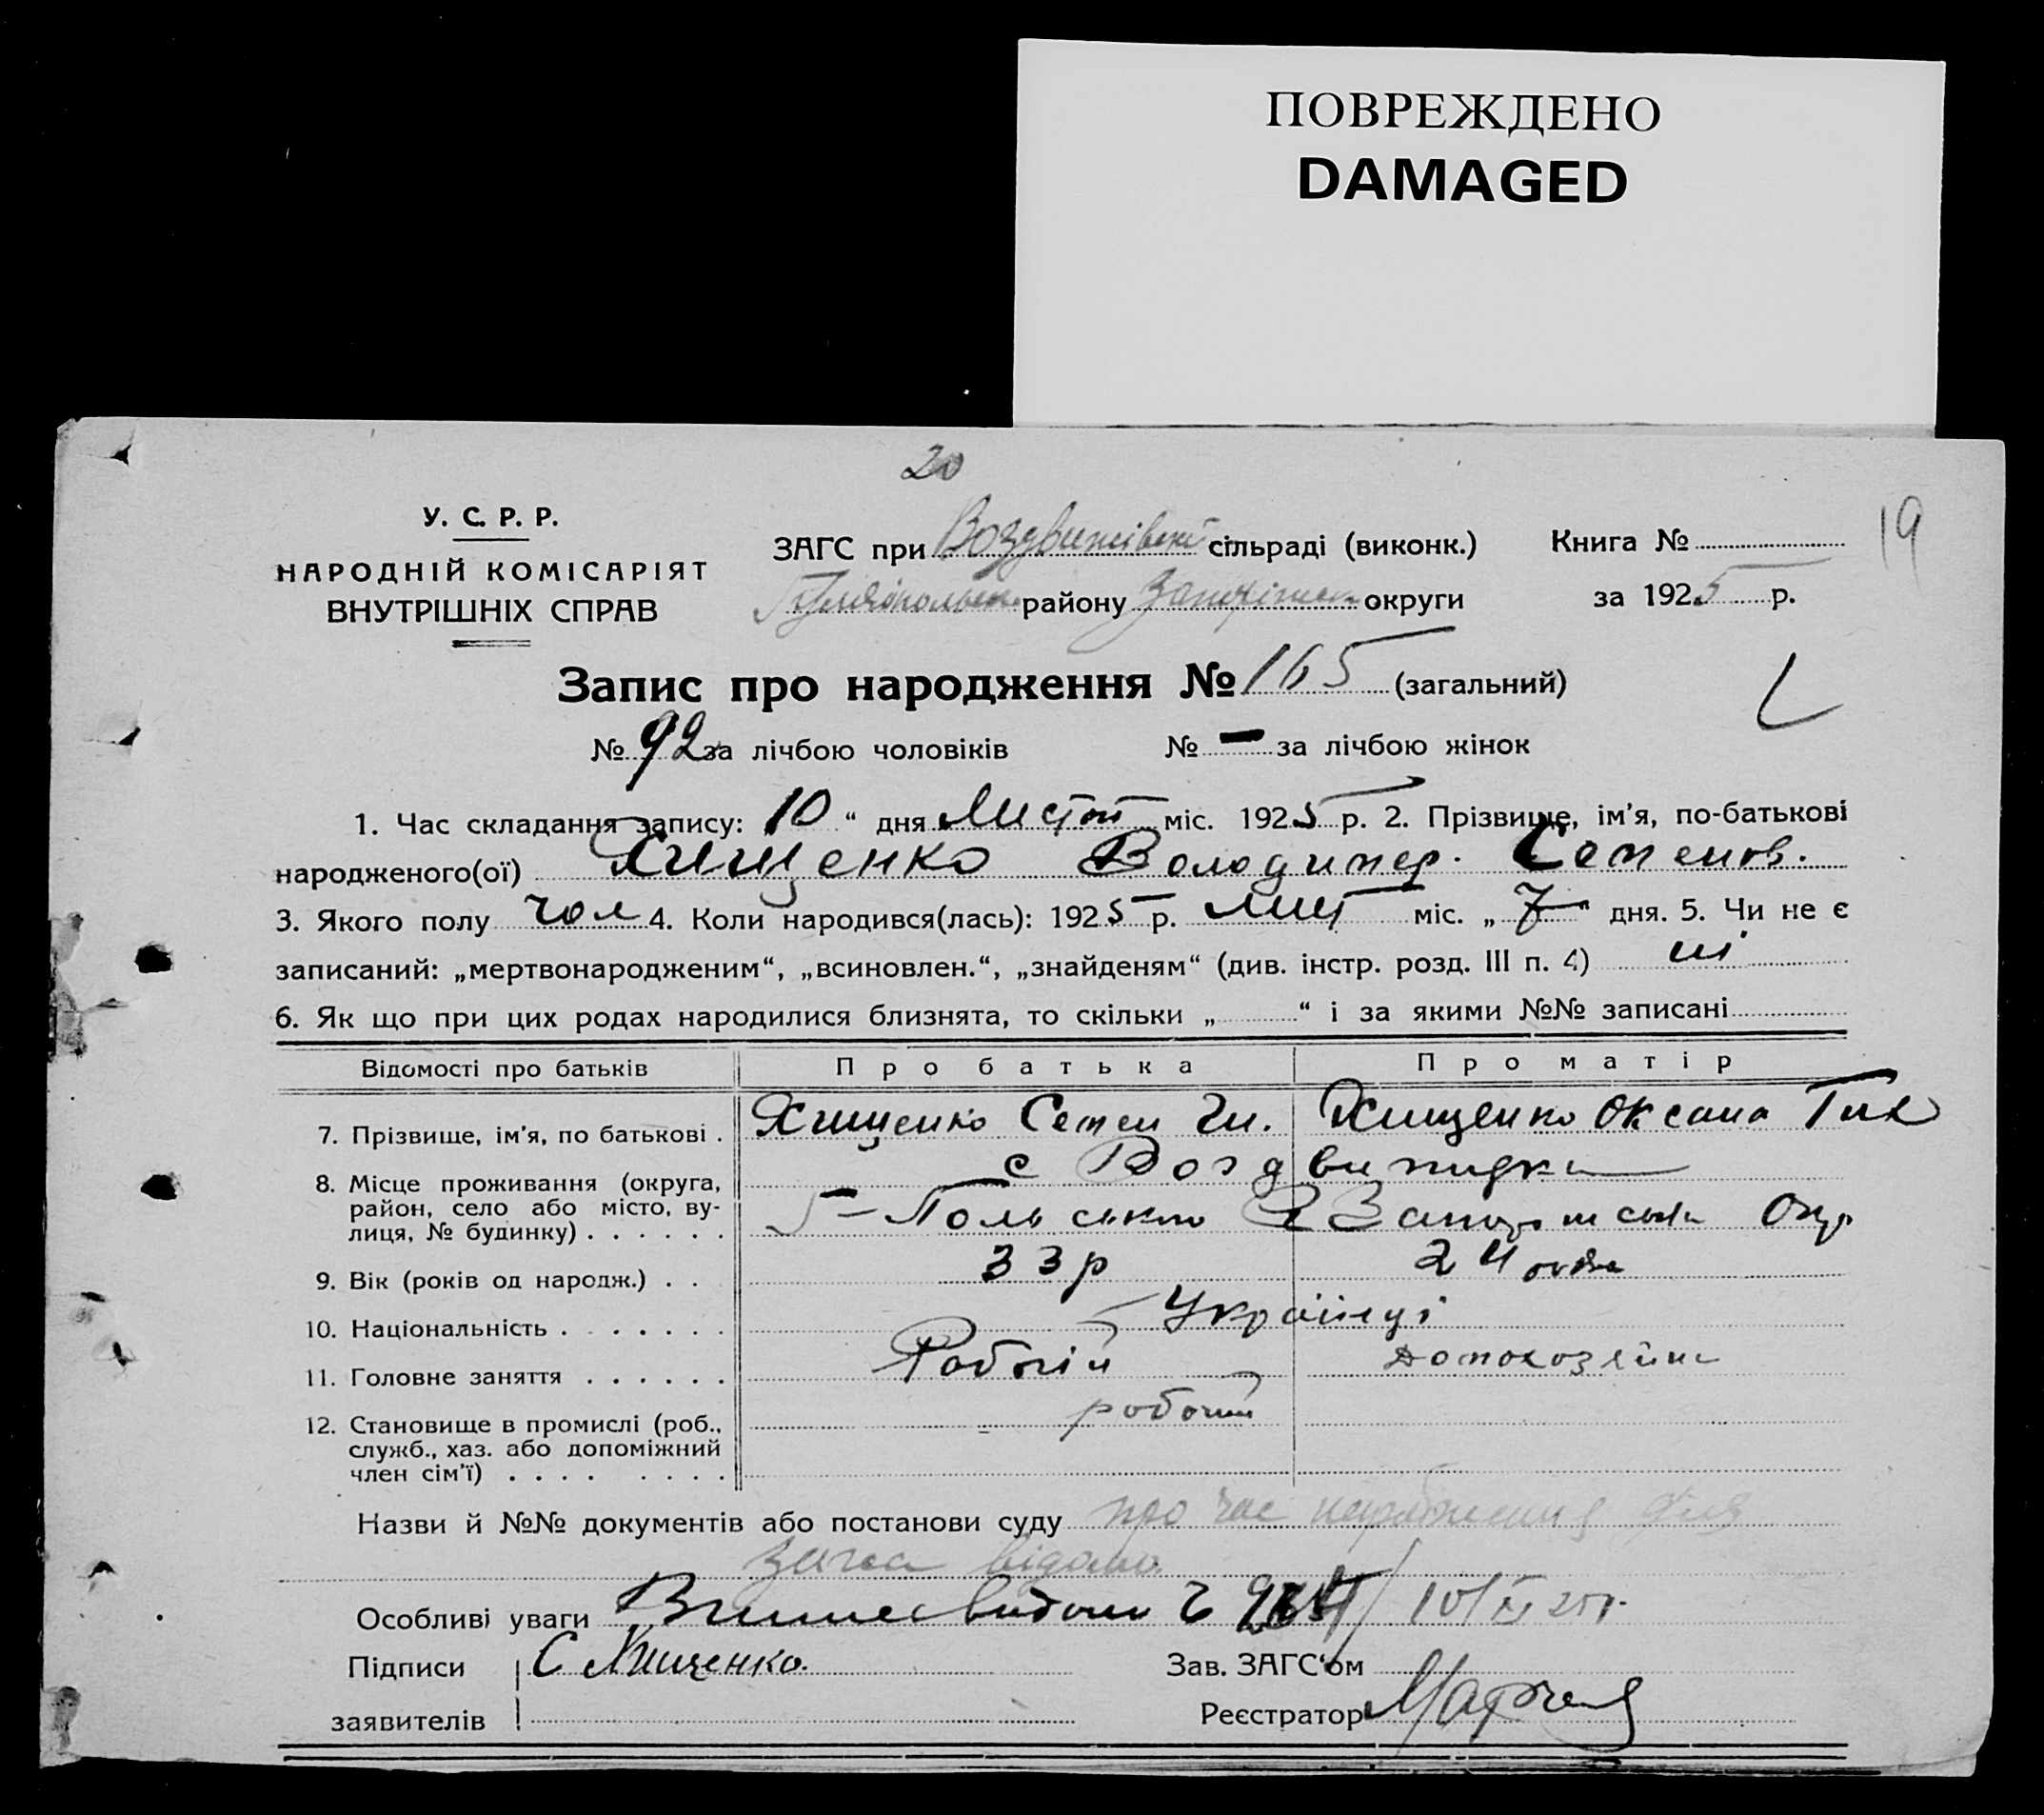 ПОВРЕЖДЕНО
DAMAGED
20
19
У. С. Р. Р.
НАРОДНІЙ КОМІСАРІЯТ
ВНУТРІШНІХ СПРАВ
ЗАГС при Воздвижівській сільраді (виконк.)
Книга №
Гуляйпольськ. району Запоріжськ округи
за 1925 р.
Запис про народження № 165 (загальний)
№ 92 за лічбою чоловіків № — за лічбою жінок
1. Час складання запису: 10 “ дня Листоп міс. 1925 р. 2. Прізвище, ім’я, по-батькові
народженого(ої) Хищенко Володимер. Семенов.
3. Якого полу чол 4. Коли народився(лась): 1925 р. лист міс. „ 7 “ дня. 5. Чи не є
записаний: „мертвонародженим“, „всиновлен.“, „знайденям“ (див. інстр. розд. III п. 4) ні
6. Як що при цих родах народилися близнята, то скільки „ “ і за якими №№ записані
Відомості про батьків Про батька Про матір
7. Прізвище, ім’я, по батькові . Хищенко Семен Хищенко Оксана
8. Місце проживання (округа,
район, село або місто, ву-
лиця, № будинку) . . . . . .
с Воздвижидка
Г-Польського Р Запоріжської Окр
9. Вік (років од народж.) . . 33 р 24
10. Національність . . . . . . . Українці
11. Головне заняття . . . . . . Робочій домохозяйка
12. Становище в промислі (роб.,
служб., хаз. або допоміжний
член сім’ї) . . . . . . . .
робочий
Назви й №№ документів або постанови суду про час народження
відомо.
Особливі уваги 10/XI 25 р.
Підписи С Хищенко. Зав. ЗАГС‘ом
заявителів Реєстратор